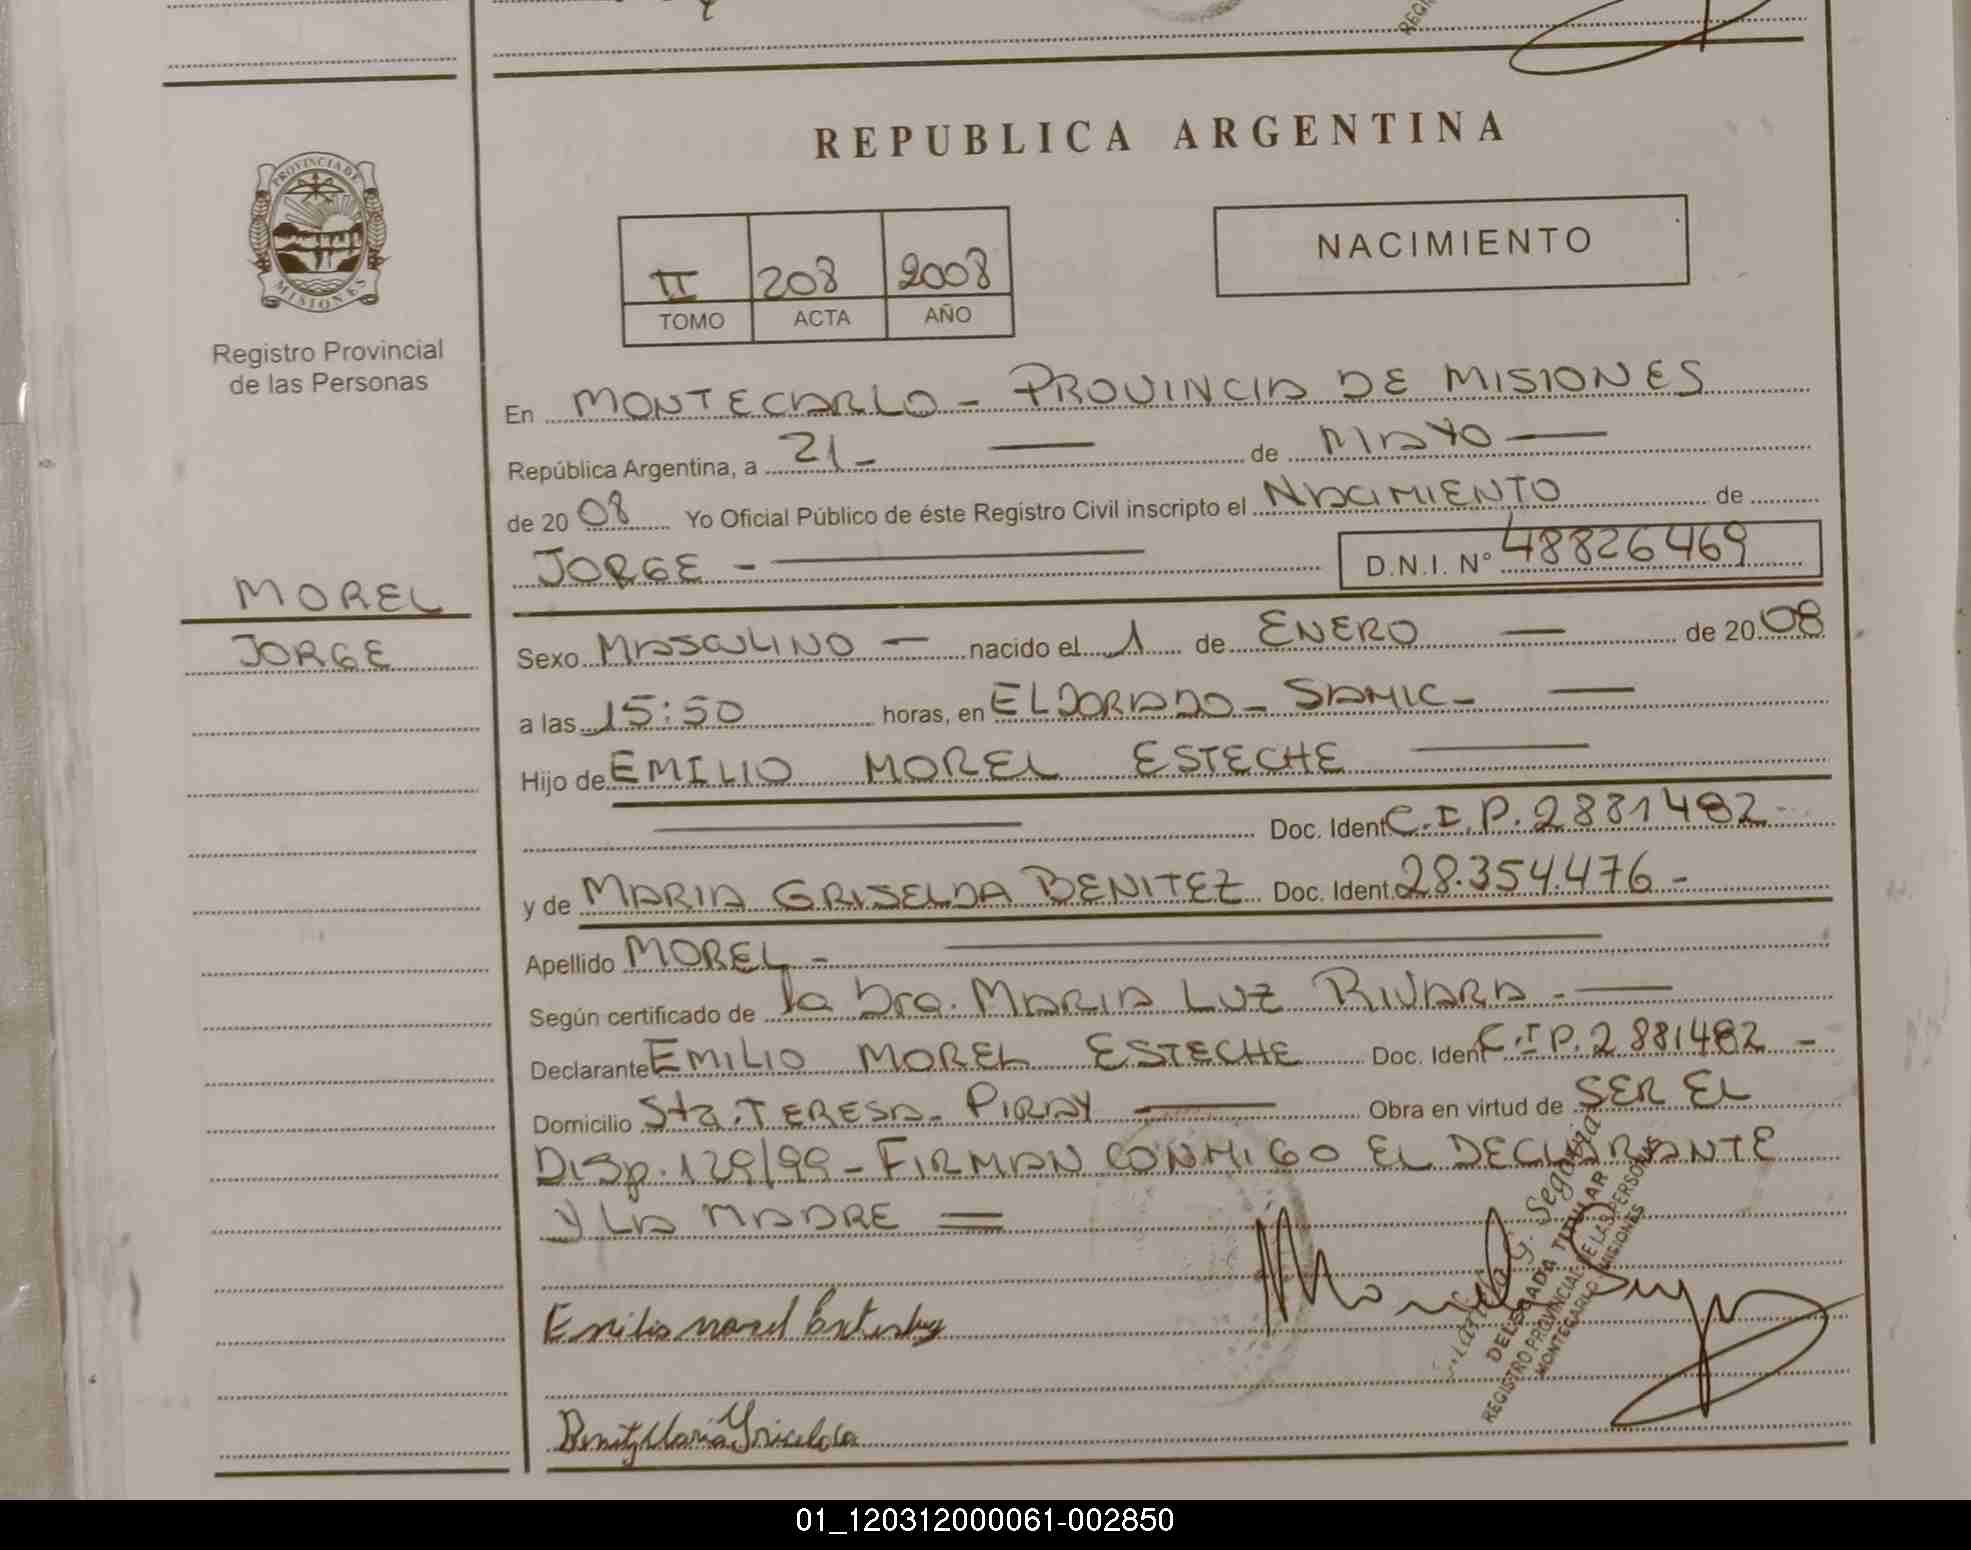 REPUBLICA ARGENTINA
PROVINCIA DE
MISIONES
Registro Provincial
de las Personas
NACIMIENTO
II 208 2008
TOMO ACTA AÑO
En MONTECARLO - PROVINCIA DE MISIONES
República Argentina, a 21 - de MAYO
de 2008 Yo Oficial Público de éste Registro Civil inscripto el NACIMIENTO de
JORGE - D.N.I. Nº 48826469
MOREL
JORGE
Sexo MASCULINO - nacido el 1 de ENERO - de 2008
a las 15:50 horas, en ELDORADO - SAMIC -
Hijo de EMILIO MOREL ESTECHE
Doc. Ident. C.I.P. 2881482
y de MARIA GRISELDA BENITEZ Doc. Ident. 28.354.476 -
Apellido MOREL -
Según certificado de la Dra. MARIA LUZ RIVARA -
Declarante EMILIO MOREL ESTECHE Doc. Ident C.I.P. 2881482 -
Domicilio Sta. TERESA - PIRAY Obra en virtud de SER EL
Disp. 129/99 - FIRMAN CONMIGO EL DECLARANTE
Y LA MADRE =
Emilio Morel Esteche
Benitez Maria Griselda
G. Segovia
DELEGADA TITULAR
REGISTRO PROVINCIAL DE LAS PERSONAS
MONTECARLO - MISIONES
01_120312000061-002850